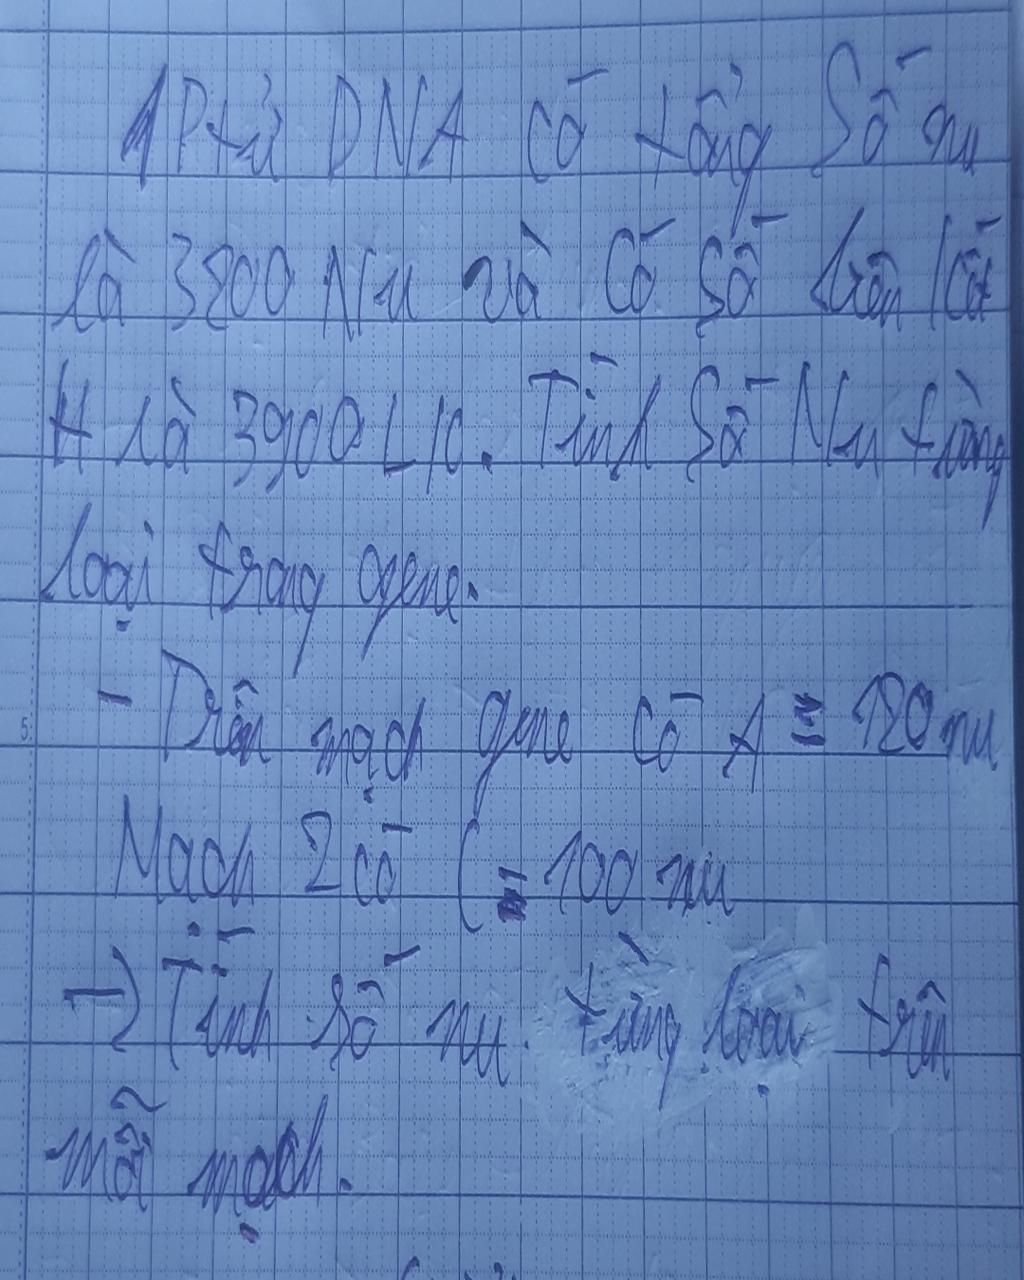 1 Ptử DNA có tổng Số nu
là 3200 Nu và Có Số liên kết
H là 3900 L/K. Tính Số Nu từng
loại trong gene.
- Trên mạch gene có A = 120 nu
Mạch 2 có C = 100 nu
→ Tính số nu từng loại trên
mỗi mạch.